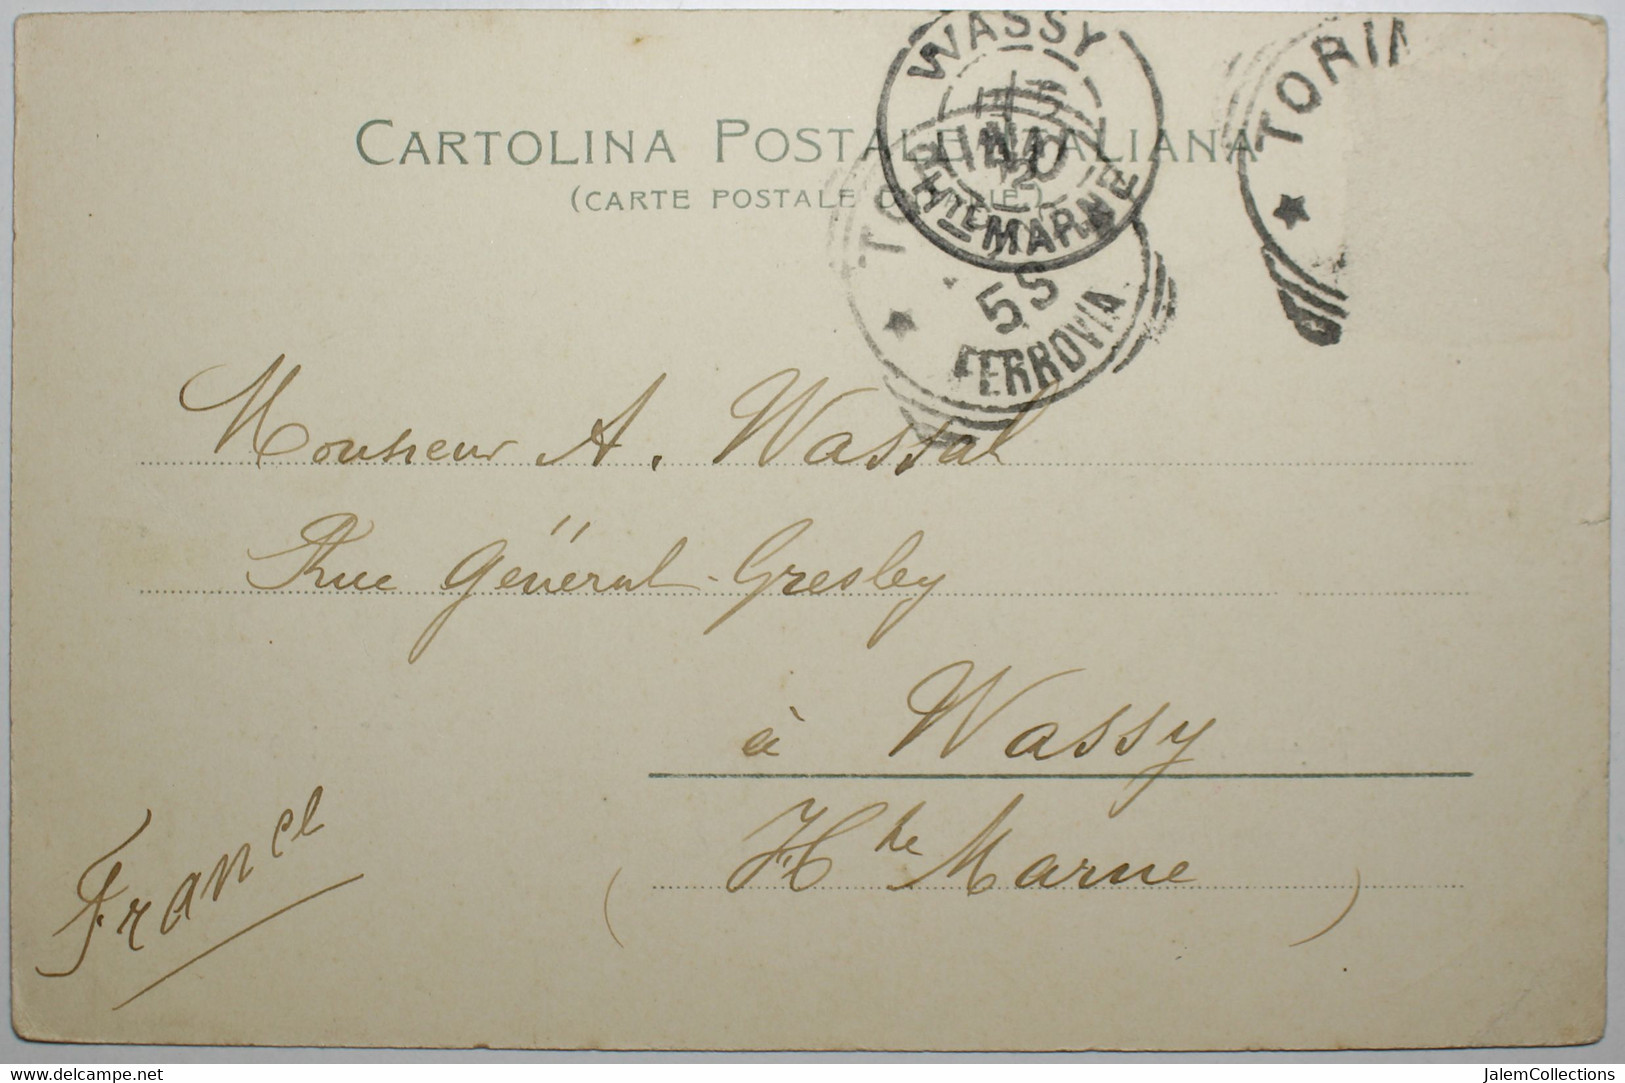 CARTOLINA POSTALE ITALIANA
(CARTE POSTALE D'ITALIE.)
WASSY
HTE MARNE
TORI
55
FERROVIA
TORIN
Monsieur A. Wassal
Rue Général Gresley
à Wassy
(Hte Marne)
www.delcampe.net
JalemCollections